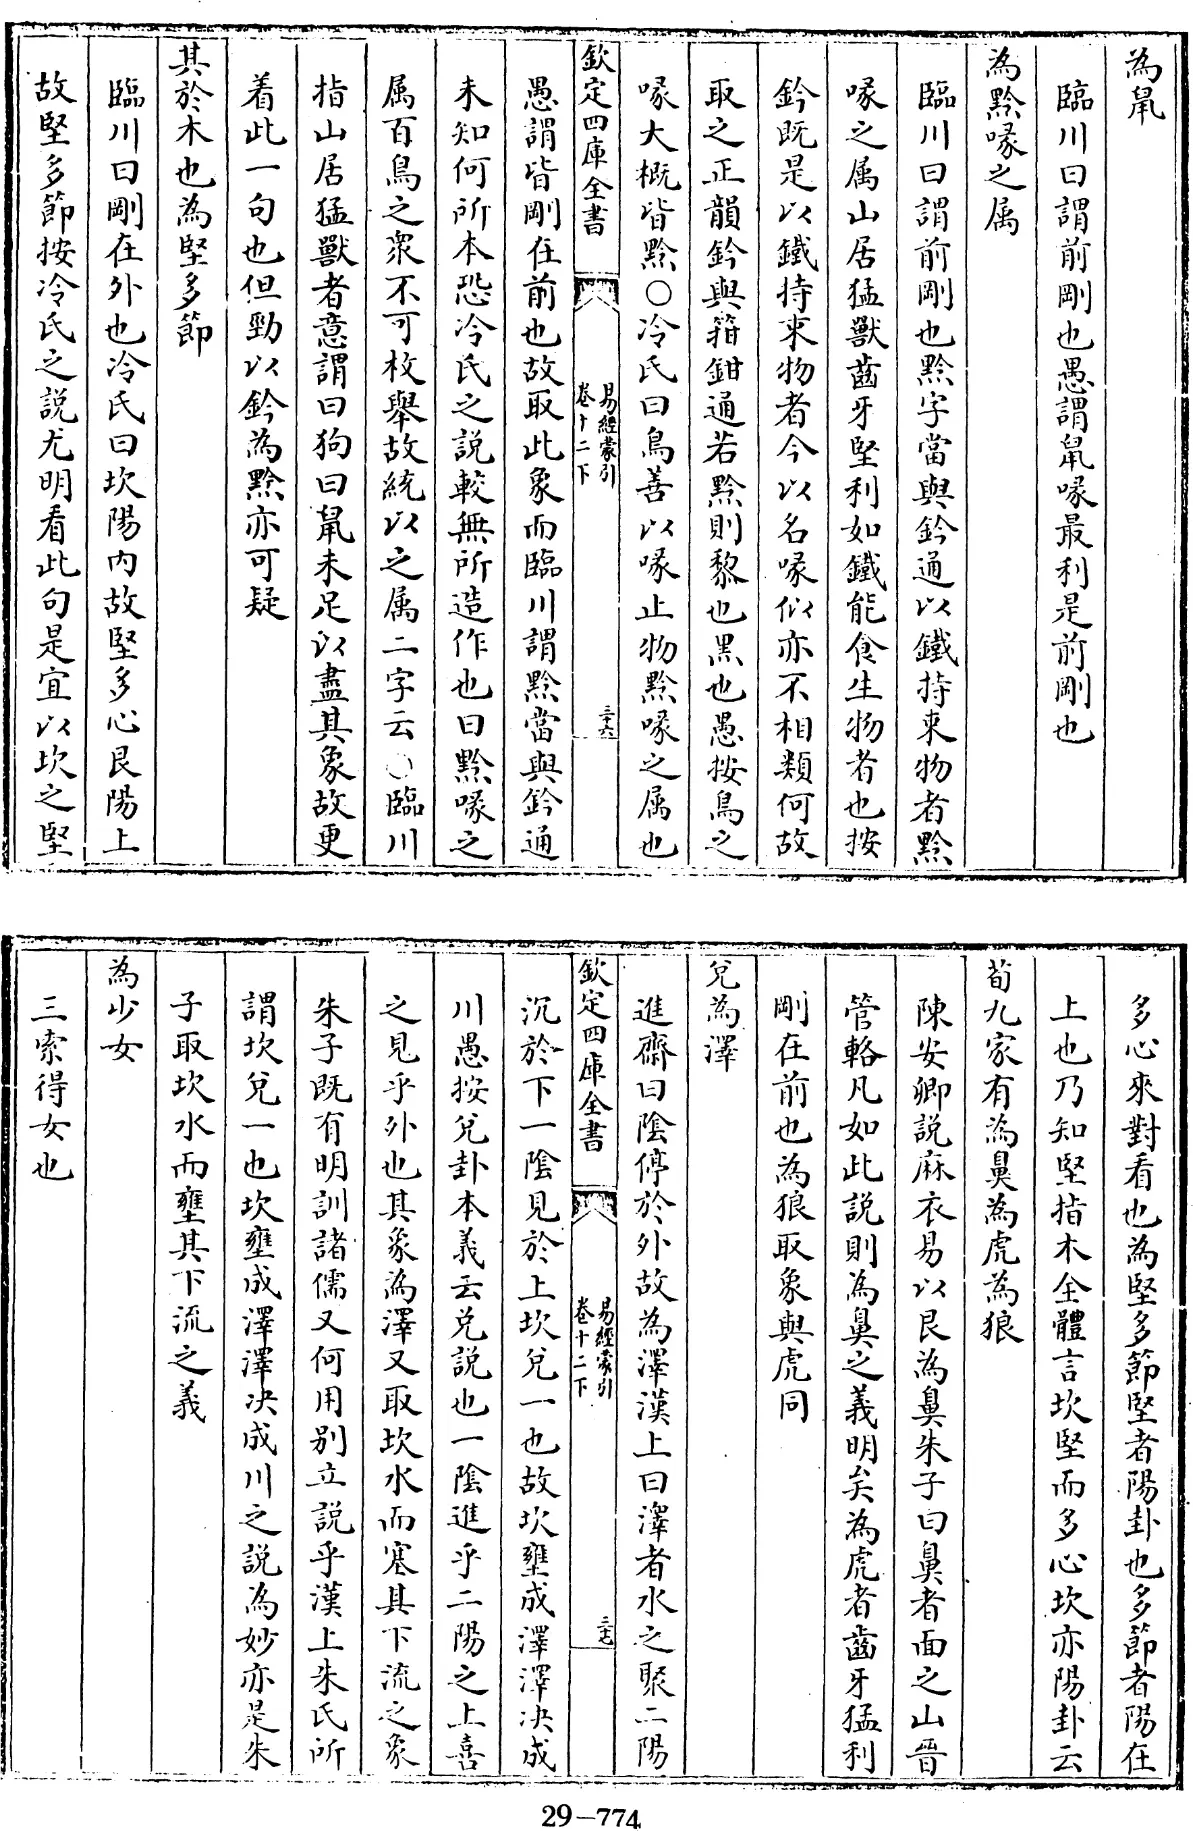 為䑕
臨川曰謂前剛也愚謂䑕喙最利是前剛也
為黔喙之属
臨川曰謂前剛也黔字當與鈐通以鐵持束物者黔
喙之属山居猛獸齒牙堅利如鐵能食生物者也按
鈐既是以鐵持束物者今以名喙似亦不相類何故
取之正韻鈐與箝鉗通若黔則黎也黑也愚按鳥之
喙大概皆黔○冷氏曰鳥善以喙止物黔喙之属也
欽定四庫全書
易經蒙引
卷十二下
三十六
愚謂皆剛在前也故取此象而臨川謂黔當與鈐通
未知何所本恐冷氏之說較無所造作也曰黔喙之
属百鳥之衆不可枚舉故統以之属二字云○臨川
指山居猛獸者意謂曰狗曰䑕未足以盡其象故更
着此一句也但勁以鈐為黔亦可疑
其於木也為堅多節
臨川曰剛在外也冷氏曰坎陽内故堅多心艮陽上
故堅多節按冷氏之說尤明看此句是宜以坎之堅
多心來對看也為堅多節堅者陽卦也多節者陽在
上也乃知堅指木全體言坎堅而多心坎亦陽卦云
荀九家有為鼻為虎為狼
陳安卿說麻衣易以艮為鼻朱子曰鼻者面之山晉
管輅凡如此說則為鼻之義明矣為虎者齒牙猛利
剛在前也為狼取象與虎同
兌為澤
進齋曰陰停於外故為澤漢上曰澤者水之聚二陽
欽定四庫全書
易經蒙引
卷十二下
三十七
沉於下一陰見於上坎兌一也故坎壅成澤澤決成
川愚按兌卦本義云兌說也一陰進乎二陽之上喜
之見乎外也其象為澤又取坎水而塞其下流之象
朱子既有明訓諸儒又何用别立說乎漢上朱氏所
謂坎兌一也坎壅成澤澤決成川之說為妙亦是朱
子取坎水而壅其下流之義
為少女
三索得女也
29-774